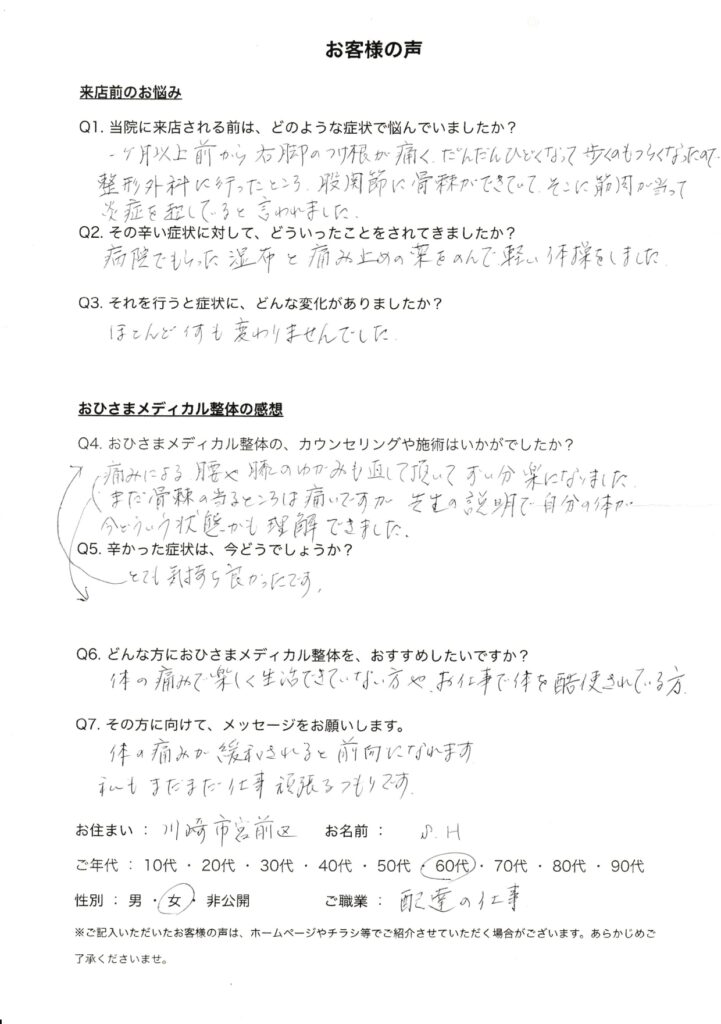 お客様の声
来店前のお悩み
Q1. 当院に来店される前は、どのような症状で悩んでいましたか？
一ヶ月以上前から右脚のつけ根が痛く、だんだんひどくなって歩くのもつらくなったので
整形外科に行ったところ、股関節に骨棘ができていて、そこに筋肉が当って
炎症を起していると言われました。
Q2. その辛い症状に対して、どういったことをされてきましたか？
病院でもらった湿布と痛み止めの薬をのんで軽い体操をしました。
Q3. それを行うと症状に、どんな変化がありましたか？
ほとんど何も変わりませんでした。
おひさまメディカル整体の感想
Q4. おひさまメディカル整体の、カウンセリングや施術はいかがでしたか？
痛みによる腰や膝のゆがみも直して頂いてずい分楽になりました。
まだ骨棘の当るところは痛いですが、先生の説明で自分の体が
今どういう状態かも理解できました。
Q5. 辛かった症状は、今どうでしょうか？
とても気持ち良かったです。
Q6. どんな方におひさまメディカル整体を、おすすめしたいですか？
体の痛みで楽しく生活できていない方や、お仕事で体を酷使されている方
Q7. その方に向けて、メッセージをお願いします。
体の痛みが緩和されると前向になれます
私もまだまだ仕事頑張るつもりです。
お住まい ： 川崎市宮前区 お名前 ： S.H
ご年代 ： 10代 ・ 20代 ・ 30代 ・ 40代 ・ 50代 ・ 60代 ・ 70代 ・ 80代 ・ 90代
性別 ： 男 ・ 女 ・ 非公開 ご職業 ： 配達の仕事
※ご記入いただいたお客様の声は、ホームページやチラシ等でご紹介させていただく場合がございます。あらかじめご
了承くださいませ。